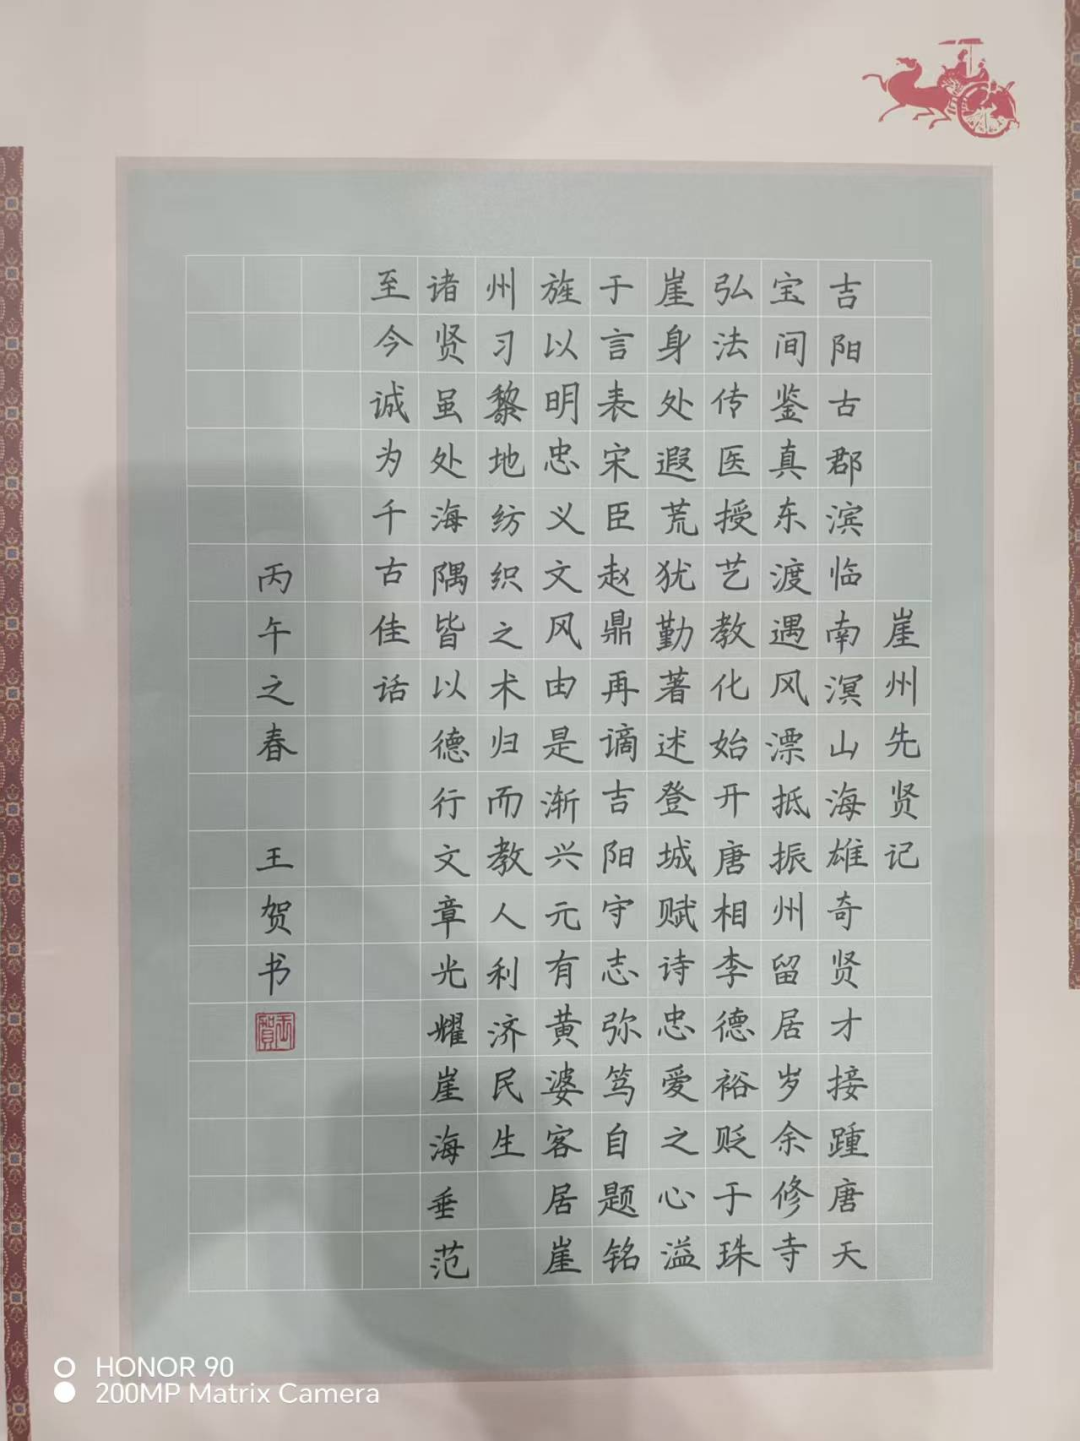 崖州先贤记
吉阳古郡滨临南溟山海雄奇贤才接踵唐天
宝间鉴真东渡遇风漂抵振州留居岁余修寺
弘法传医授艺教化始开唐相李德裕贬于珠
崖身处遐荒犹勤著述登城赋诗忠爱之心溢
于言表宋臣赵鼎再谪吉阳守志弥笃自题铭
旌以明忠义文风由是渐兴元有黄婆客居崖
州习黎地纺织之术归而教人利济民生
诸贤虽处海隅皆以德行文章光耀崖海垂范
至今诚为千古佳话
丙午之春 王贺书
HONOR 90
200MP Matrix Camera